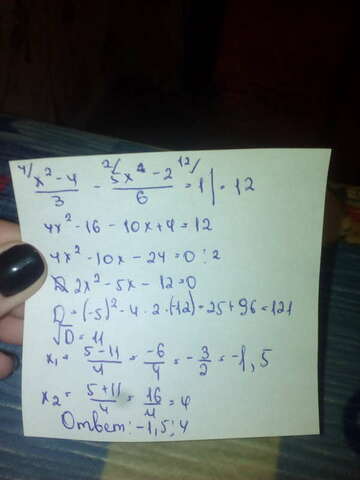 4/ x² - 4 / 3 - 2/ 5x - 2 / 6 = 12/ 1 | · 12
4x² - 16 - 10x + 4 = 12
4x² - 10x - 24 = 0 : 2
2x² - 5x - 12 = 0
D = (-5)² - 4 · 2 · (-12) = 25 + 96 = 121
√D = 11
x₁ = 5 - 11 / 4 = -6 / 4 = - 3 / 2 = -1,5
x₂ = 5 + 11 / 4 = 16 / 4 = 4
Ответ: -1,5; 4